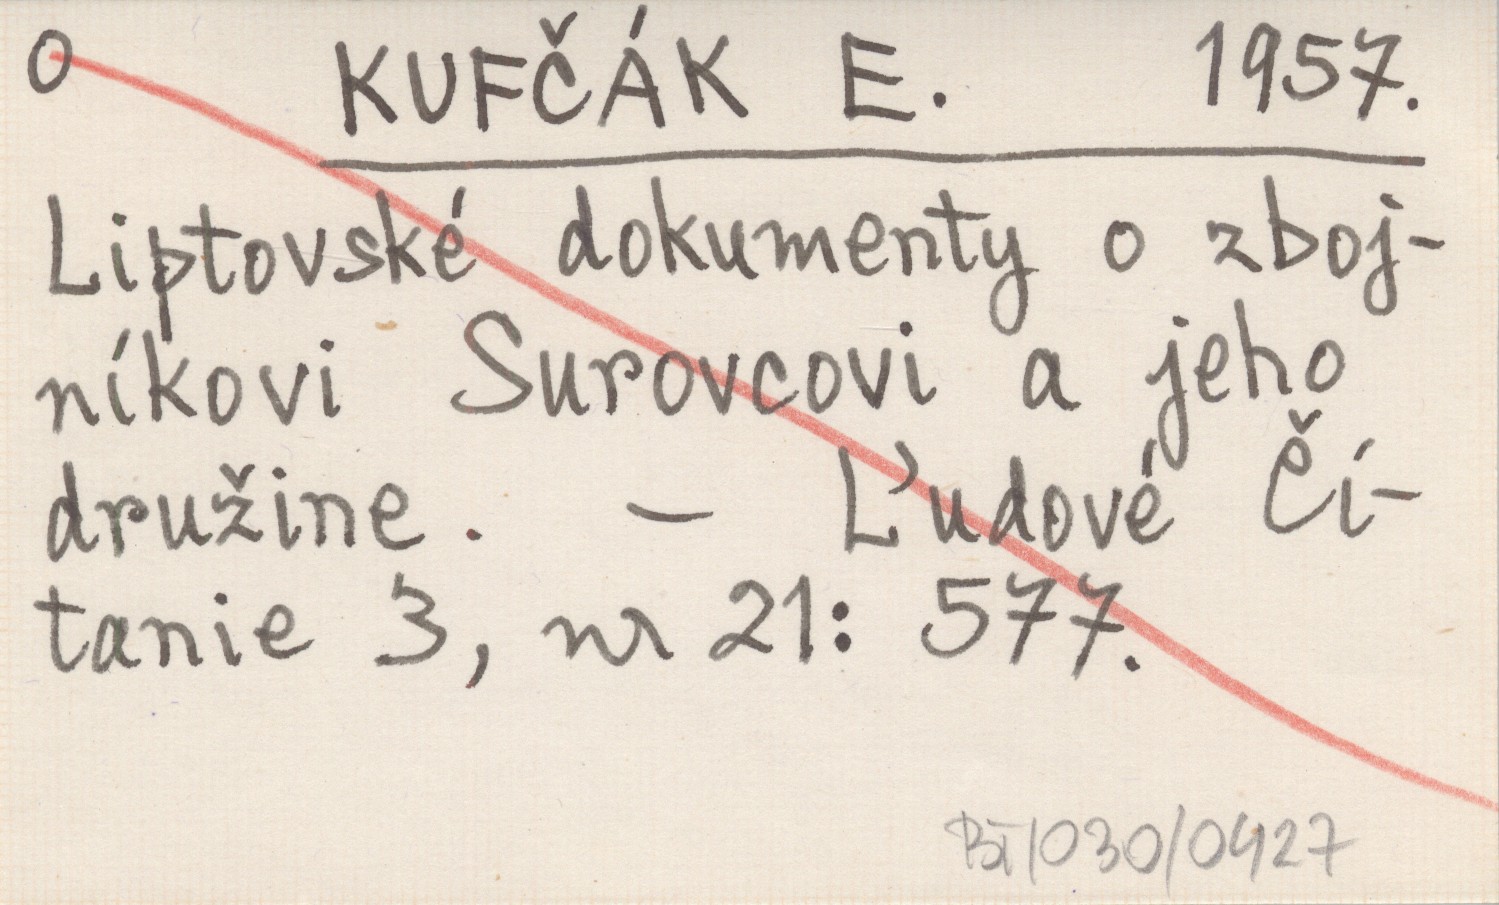 O KUFČÁK E. 1957.
Liptovské dokumenty o zboj-
níkovi Surovcovi a jeho
družine. — Ľudové Čí-
tanie 3, nr 21: 577.
BT/030/0427